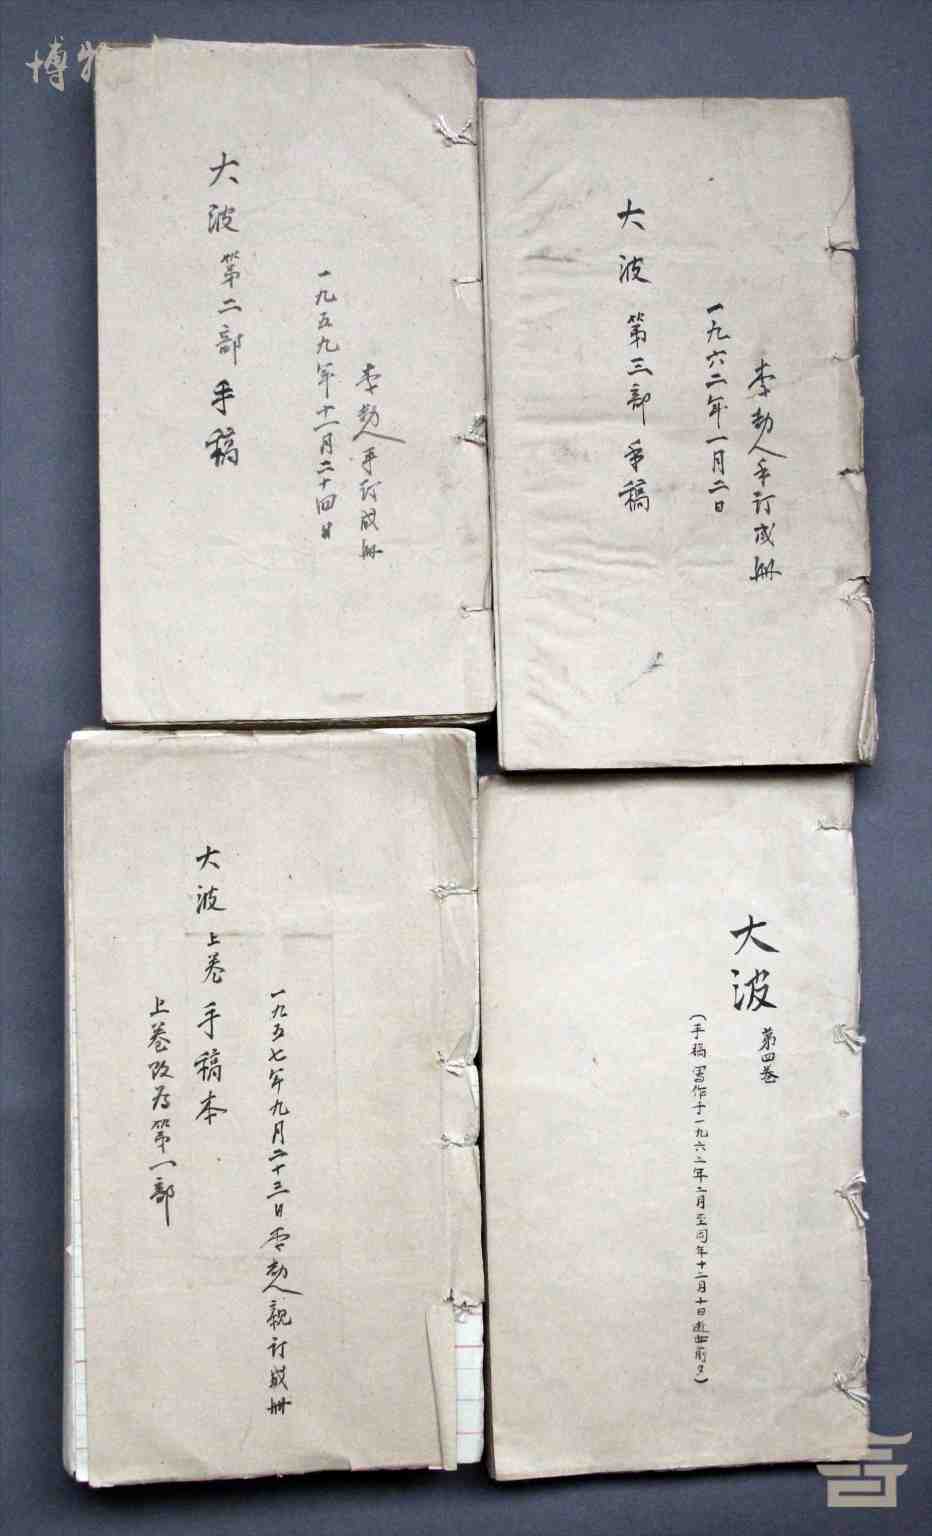 博物
大波第二部手稿
一九五九年十一月二十四日
李劼人手订成册
大波第三部手稿
一九六二年一月二日
李劼人手订成册
大波上卷手稿本
上卷改为第一部
一九五七年九月二十三日李劼人亲订成册
大波第四卷
(手稿写作于一九六二年二月至同年十二月十日逝世前夕)